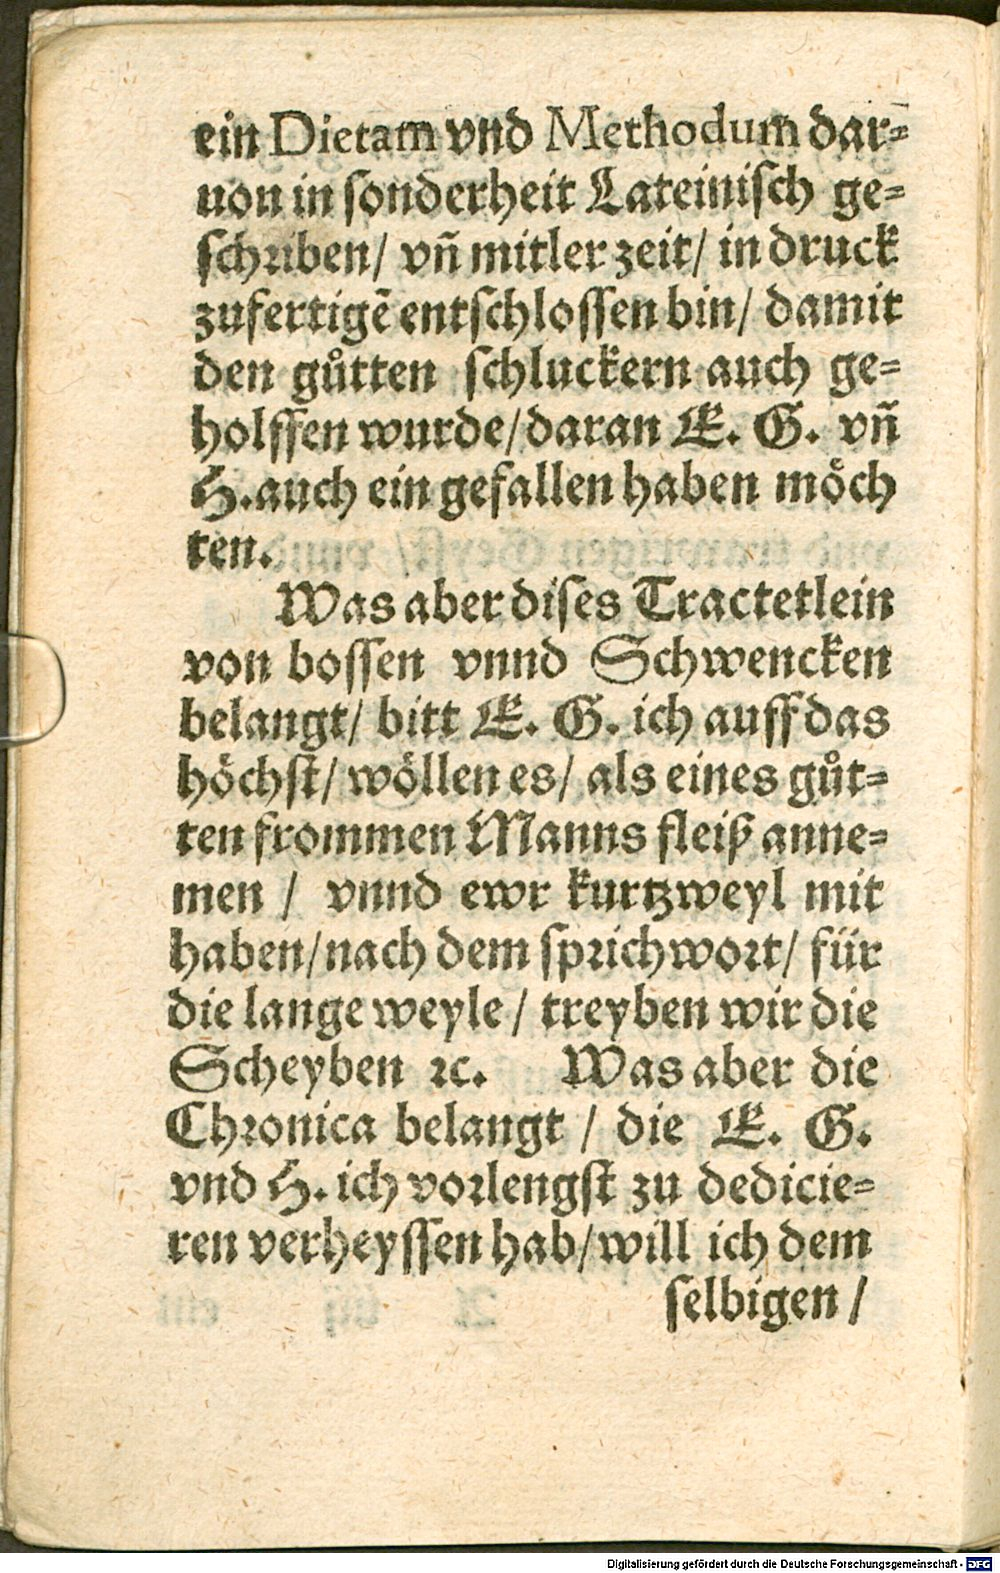 ein Dietam vnd Methodum dar⸗
uon in sonderheit Lateinisch ge⸗
schriben/ vñ mitler zeit/ in druck
zufertigē entschlossen bin/ damit
den gůtten schluckern auch ge⸗
holffen wurde/ daran E. G. vñ
H. auch ein gefallen haben möch
ten.
Was aber dises Tractetlein
von bossen vnnd Schwencken
belangt/ bitt E. G. ich auff das
höchst/ wöllen es/ als eines gůt⸗
ten frommen Manns fleiß anne⸗
men / vnnd ewr kurtzweyl mit
haben/ nach dem sprichwort/ für
die lange weyle / treyben wir die
Scheyben ꝛc. Was aber die
Chronica belangt / die E. G.
vnd H. ich vorlengst zu dedicie⸗
ren verheyssen hab/ will ich dem
selbigen /
Digitalisierung gefördert durch die Deutsche Forschungsgemeinschaft - DFG